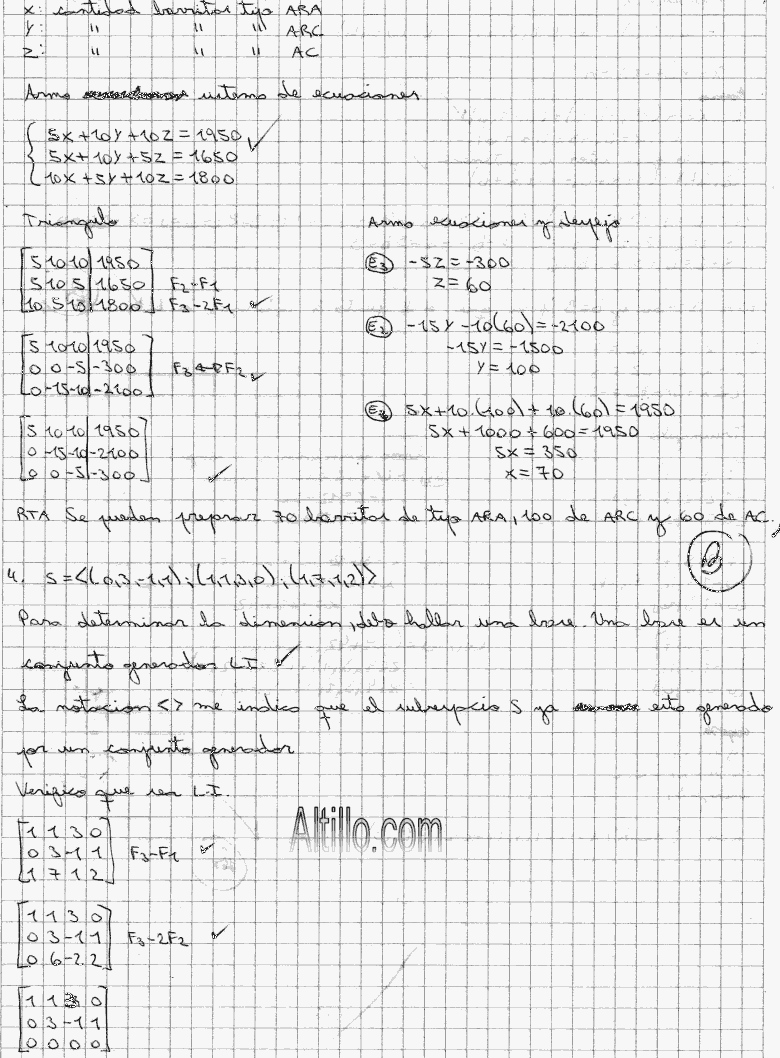 x: cantidad barritas tipo ARA
y: " " " ARC
z: " " " AC
Armo sistema de ecuaciones
5x+10y+10z=1950
5x+10y+5z=1650
10x+5y+10z=1800
Triangulo
5 10 10 | 1950
5 10 5 | 1650 F2-F1
10 5 10 | 1800 F3-2F1
5 10 10 | 1950
0 0 -5 | -300 F3↔F2
0 -15 -10 | -2100
5 10 10 | 1950
0 -15 -10 | -2100
0 0 -5 | -300
Armo ecuaciones y despejo
E3 -5z=-300
z=60
E2 -15y -10(60)=-2100
-15y=-1500
y=100
5x+10.(100)+10.(60)=1950
5x+1000+600=1950
5x=350
x=70
RTA Se pueden preparar 70 barritas de tipo ARA, 100 de ARC y 60 de AC.
B
4. S=<(0,3,-1,1);(1,1,3,0);(1,7,1,2)>
Para determinar la dimension, debo hallar una base. Una base es un
conjunto generador LI.
La notacion <> me indica que el subespacio S ya esta generado
por un conjunto generador
Verifico que sea LI.
Altillo.com
1 1 3 0
0 3 -1 1 F3-F1
1 7 1 2
1 1 3 0
0 3 -1 1 F3-2F2
0 6 -2 2
1 1 3 0
0 3 -1 1
0 0 0 0